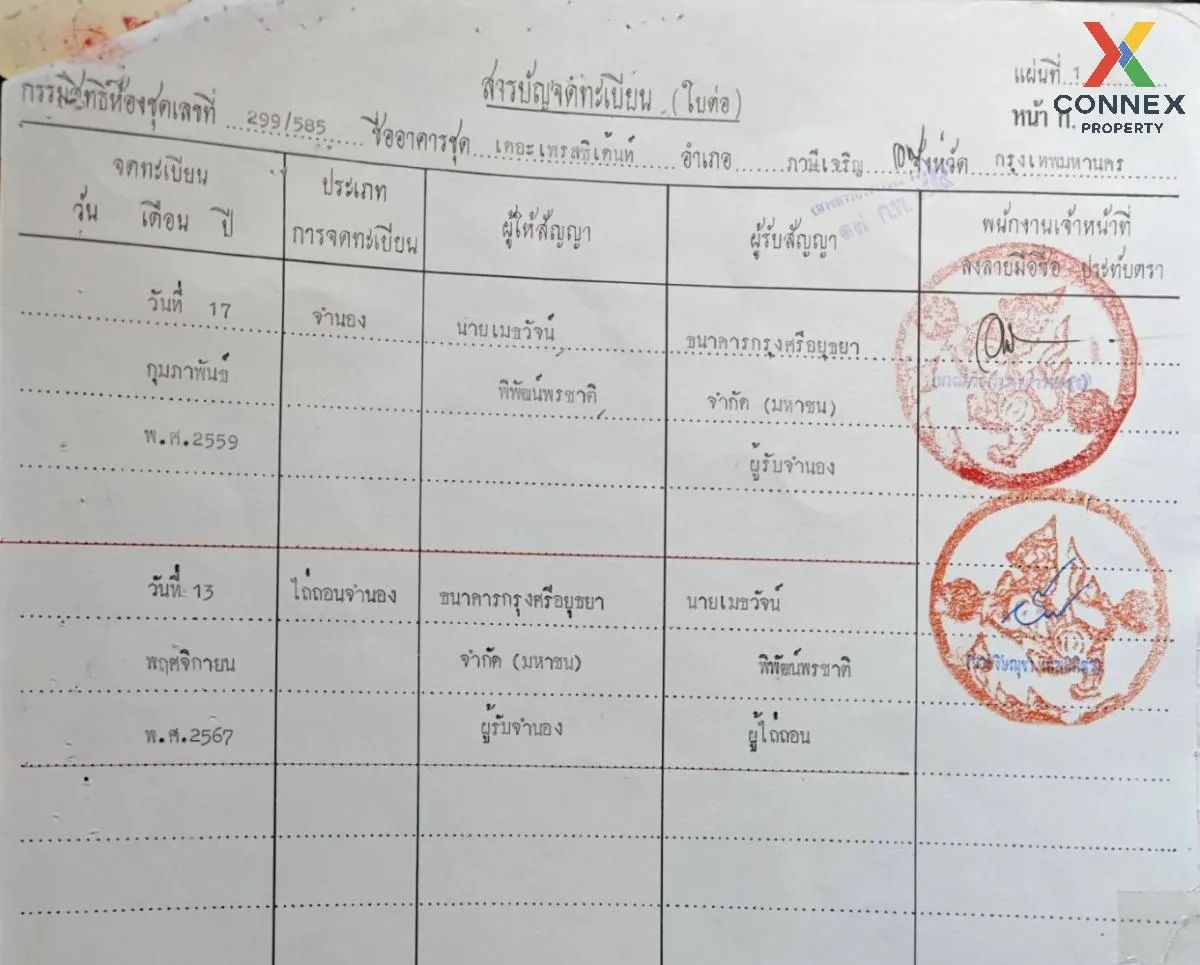 CONNEX
PROPERTY
สารบัญจดทะเบียน (ใบต่อ)
แผ่นที่ 1
หน้า ก.
กรรมสิทธิ์ห้องชุดเลขที่ 299/585 ชื่ออาคารชุด เดอะเพรสซิเด้นท์ อำเภอ ภาษีเจริญ จังหวัด กรุงเทพมหานคร
จดทะเบียน
วัน เดือน ปี
ประเภท
การจดทะเบียน
ผู้ให้สัญญา
ผู้รับสัญญา
พนักงานเจ้าหน้าที่
ลงลายมือชื่อ ประทับตรา
วันที่ 17 จำนอง นายเมธวัจน์ ธนาคารกรุงศรีอยุธยา
กุมภาพันธ์ พิพัฒน์พรชาติ จำกัด (มหาชน)
พ.ศ.2559 ผู้รับจำนอง
วันที่ 13 ไถ่ถอนจำนอง ธนาคารกรุงศรีอยุธยา นายเมธวัจน์
พฤศจิกายน จำกัด (มหาชน) พิพัฒน์พรชาติ
พ.ศ.2567 ผู้รับจำนอง ผู้ไถ่ถอน